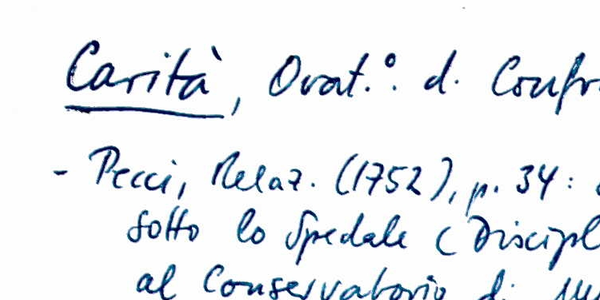 Carità, Orat.º d. Confr
- Pecci, Relaz. (1752), p. 34:
sotto lo Spedale (Discipl
al Conservatorio di